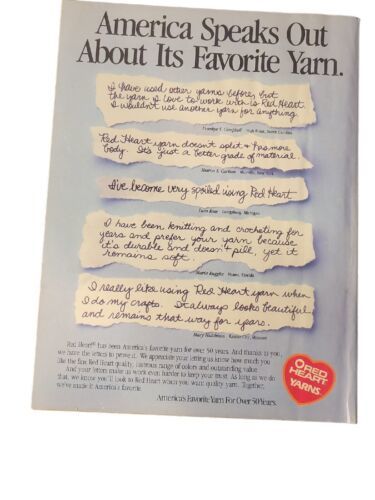 America Speaks Out
About Its Favorite Yarn.
I have used other yarns before, but
the yarn I love to work with is Red Heart.
I wouldn't use another yarn for anything.
Red Heart yarn doesn't split & has more
body. It's just a better grade of material.
I've become very spoiled using Red Heart
I have been knitting and crocheting for
years and prefer your yarn because
it's durable and doesn't pill, yet it
remains soft.
Miami, Florida
I really like using Red Heart yarn when
I do my crafts. It always looks beautiful
and remains that way for years.
Kansas City, Missouri
Red Heart® has been America's favorite yarn for over 50 years. And thanks to you,
we have the letters to prove it. We appreciate your letting us know how much you
like the fine Red Heart quality, enormous range of colors and outstanding value.
And your letters make us work even harder to keep your trust. As long as we do
that, we know you'll look to Red Heart when you want quality yarn. Together,
we've made it America's favorite.
America's Favorite Yarn For Over 50 Years.
RED
HEART
YARNS